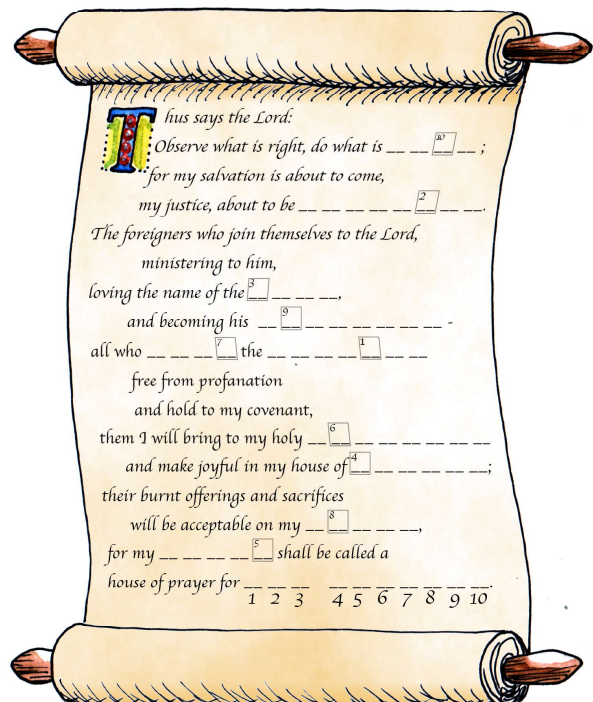 Thus says the Lord:
Observe what is right, do what is __ __ 10__ __ ;
for my salvation is about to come,
my justice, about to be __ __ __ __ __ __ 2__ __ __.
The foreigners who join themselves to the Lord,
ministering to him,
loving the name of the 3__ __ __ __,
and becoming his __ 9__ __ __ __ __ __ __ -
all who __ __ __ 7__ the __ __ __ __ 1__ __ __
free from profanation
and hold to my covenant,
them I will bring to my holy __ 6__ __ __ __ __ __ __
and make joyful in my house of 4__ __ __ __ __ __;
their burnt offerings and sacrifices
will be acceptable on my __ 8__ __ __ __,
for my __ __ __ __ 5__ shall be called a
house of prayer for __ __ __ __ __ __ __ __ __ __.
1 2 3 4 5 6 7 8 9 10